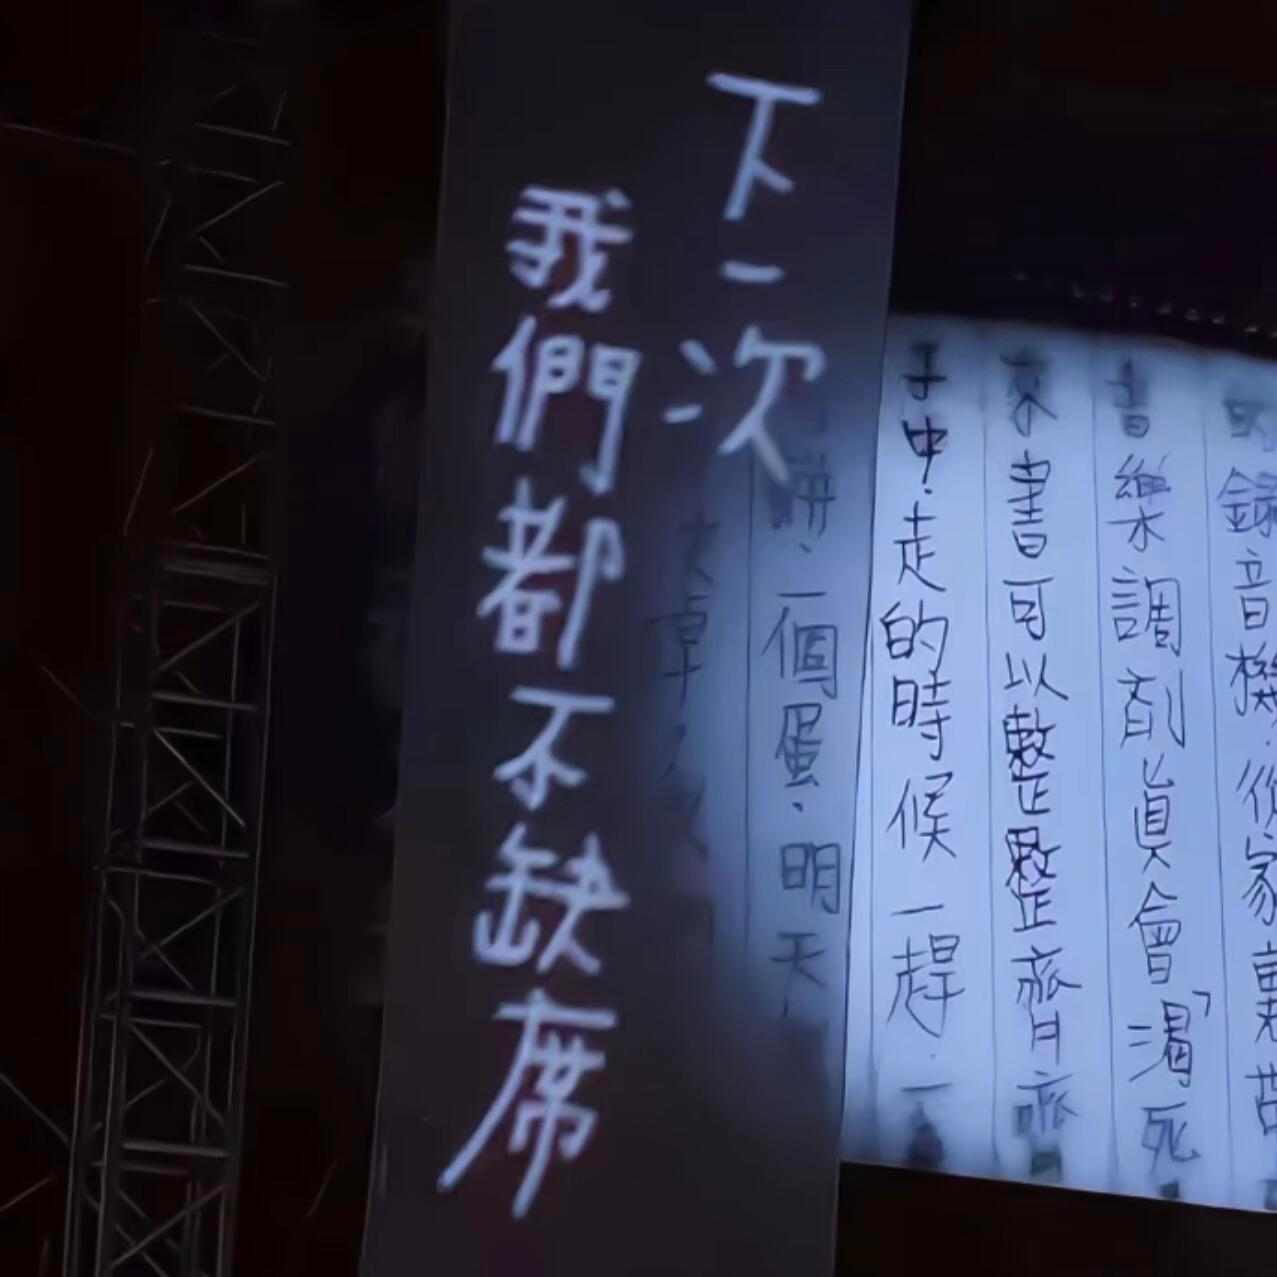 下一次
我們都不缺席
錄音機.從家裏
音樂調劑真會「渴死
來.書可以整整齊齊
子中.走的時候一趕.一
餅.一個蛋.明天